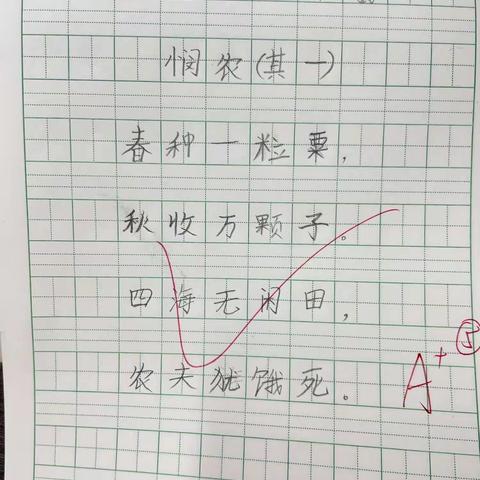 悯农(其一)
春种一粒粟,
秋收万颗子。
四海无闲田,
农夫犹饿死。
A+ ⑤